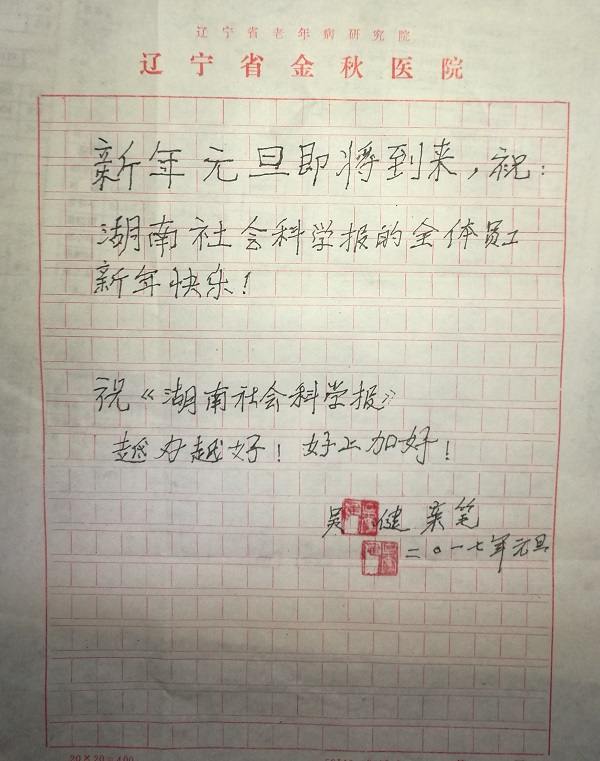 辽宁省老年病研究院
辽宁省金秋医院
新年元旦即将到来，祝：
湖南社会科学报的全体员工
新年快乐！
祝《湖南社会科学报》
越办越好！好上加好！
吴 健 亲笔
二〇一七年元旦
20×20=400